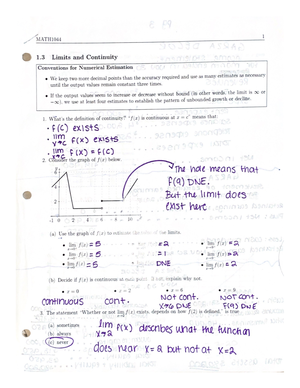 MATH1044 1
1.3 Limits and Continuity
Conventions for Numerical Estimation
• We keep two more decimal points than the accuracy required and use as many estimates as necessary
until the output values remain constant three times.
• If the output values seem to increase or decrease without bound (in other words, the limit is ∞ or
−∞), we use at least four estimates to establish the pattern of unbounded growth or decline.
1. What's the definition of continuity? "f(x) is continuous at x = c" means that
• f(c) exists
• lim x→c f(x) exists
• lim x→c f(x) = f(c)
2. Consider the graph of f(x) below.
The hole means that
f(9) DNE.
But the limit does
exist here
(a) Use the graph of f(x) to estimate the limits.
• lim f(x) = 5 = 2 • lim f(x) = 2
• lim f(x) = 5 = 1 • lim f(x) = 2
• lim f(x) = 5 DNE • lim f(x) = 2
(b) Decide if f(x) is continuous at each point. If not, explain why not.
• x = 0 • x = 2 • x = 6 • x = 9
continuous cont. Not cont. Not cont.
lim x→6 DNE f(9) DNE
3. The statement "Whether or not lim f(x) exists, depends on how f(2) is defined," is true
(a) sometimes
(b) always
(c) never
lim x→2 f(x) describes what the function
does near x=2 but not at x=2